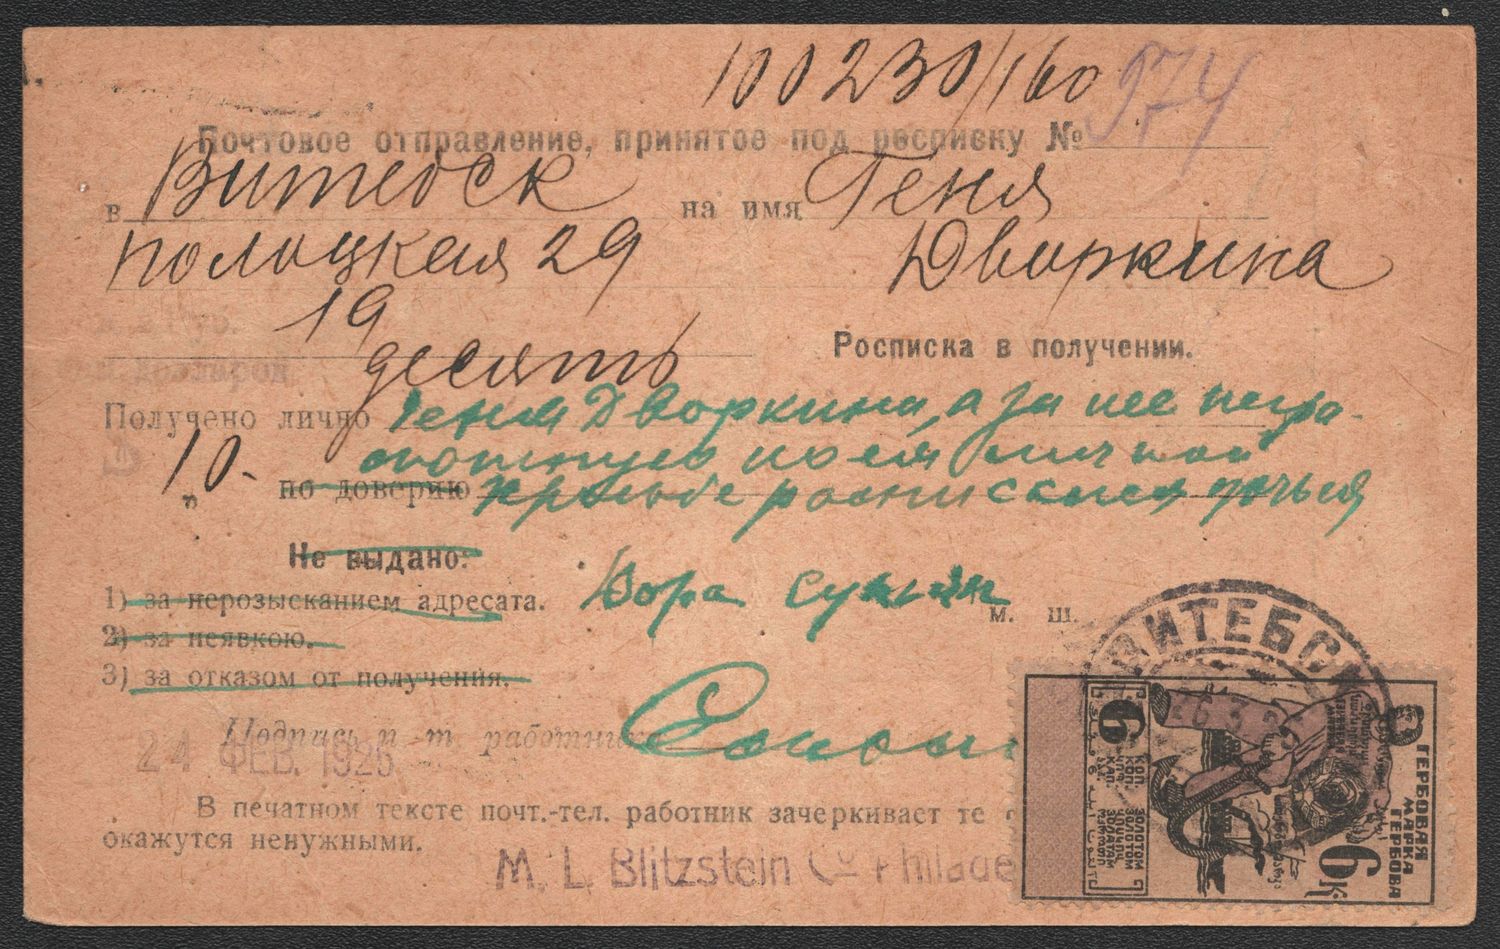 100230/160 974
Почтовое отправление, принятое под росписку №
в Витебск на имя Геня
Полоцкая 29 Дворкина
19
десять
Росписка в получении.
Получено лично Геня Дворкина, а за нее негра-
10.- мотную по ея личной
по доверию просьбе росписался дочья
Не выдано:
1) за нерозысканием адресата. м. ш.
2) за неявкою.
3) за отказом от получения.
ВИТЕБСК
Подпись п-т работника
24 ФЕВ. 1926
В печатном тексте почт.-тел. работник зачеркивает те
окажутся ненужными.
M. L. Blitzstein Co Philade
ГЕРБОВАЯ
МАРКА
ГЕРБОВА
6К.
6
КОП. ЗОЛОТОМ